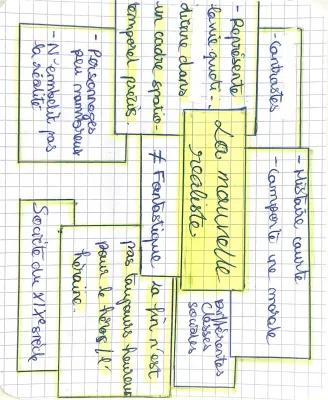 - Contrastes
- Représente
la vie quoti-
dienne dans
un cadre spatio-
temporel précis.
- Personnages
peu nombreux
- N'embellit pas
la réalité
- Histoire courte
- Comporte une morale
La nouvelle
réaliste.
≠ Fantastique
Différentes
classes
sociales
la fin n'est
pas toujours heureuse
pour le héros/l'
héroïne.
Société du XIXe siècle